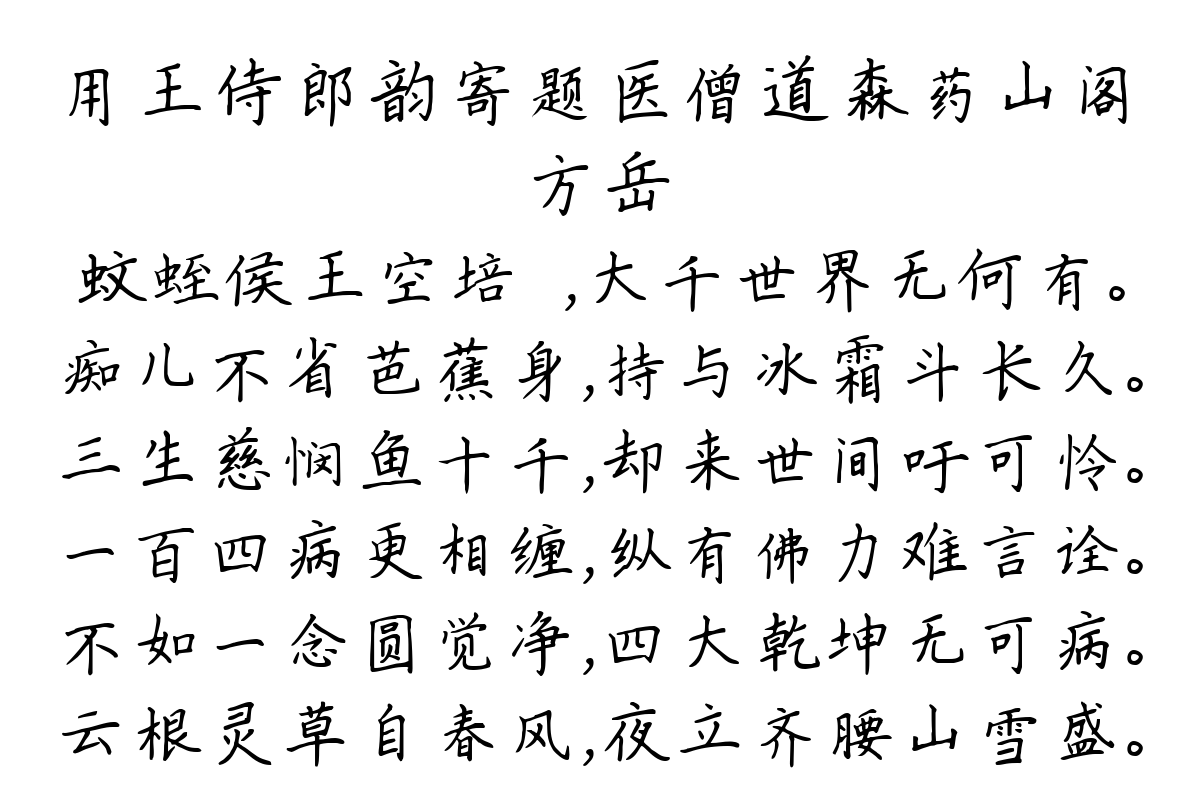 用王侍郎韵寄题医僧道森药山阁
方岳
蚊蛭侯王空培 ,大千世界无何有。
痴儿不省芭蕉身,持与冰霜斗长久。
三生慈悯鱼十千,却来世间吁可怜。
一百四病更相缠,纵有佛力难言诠。
不如一念圆觉净,四大乾坤无可病。
云根灵草自春风,夜立齐腰山雪盛。